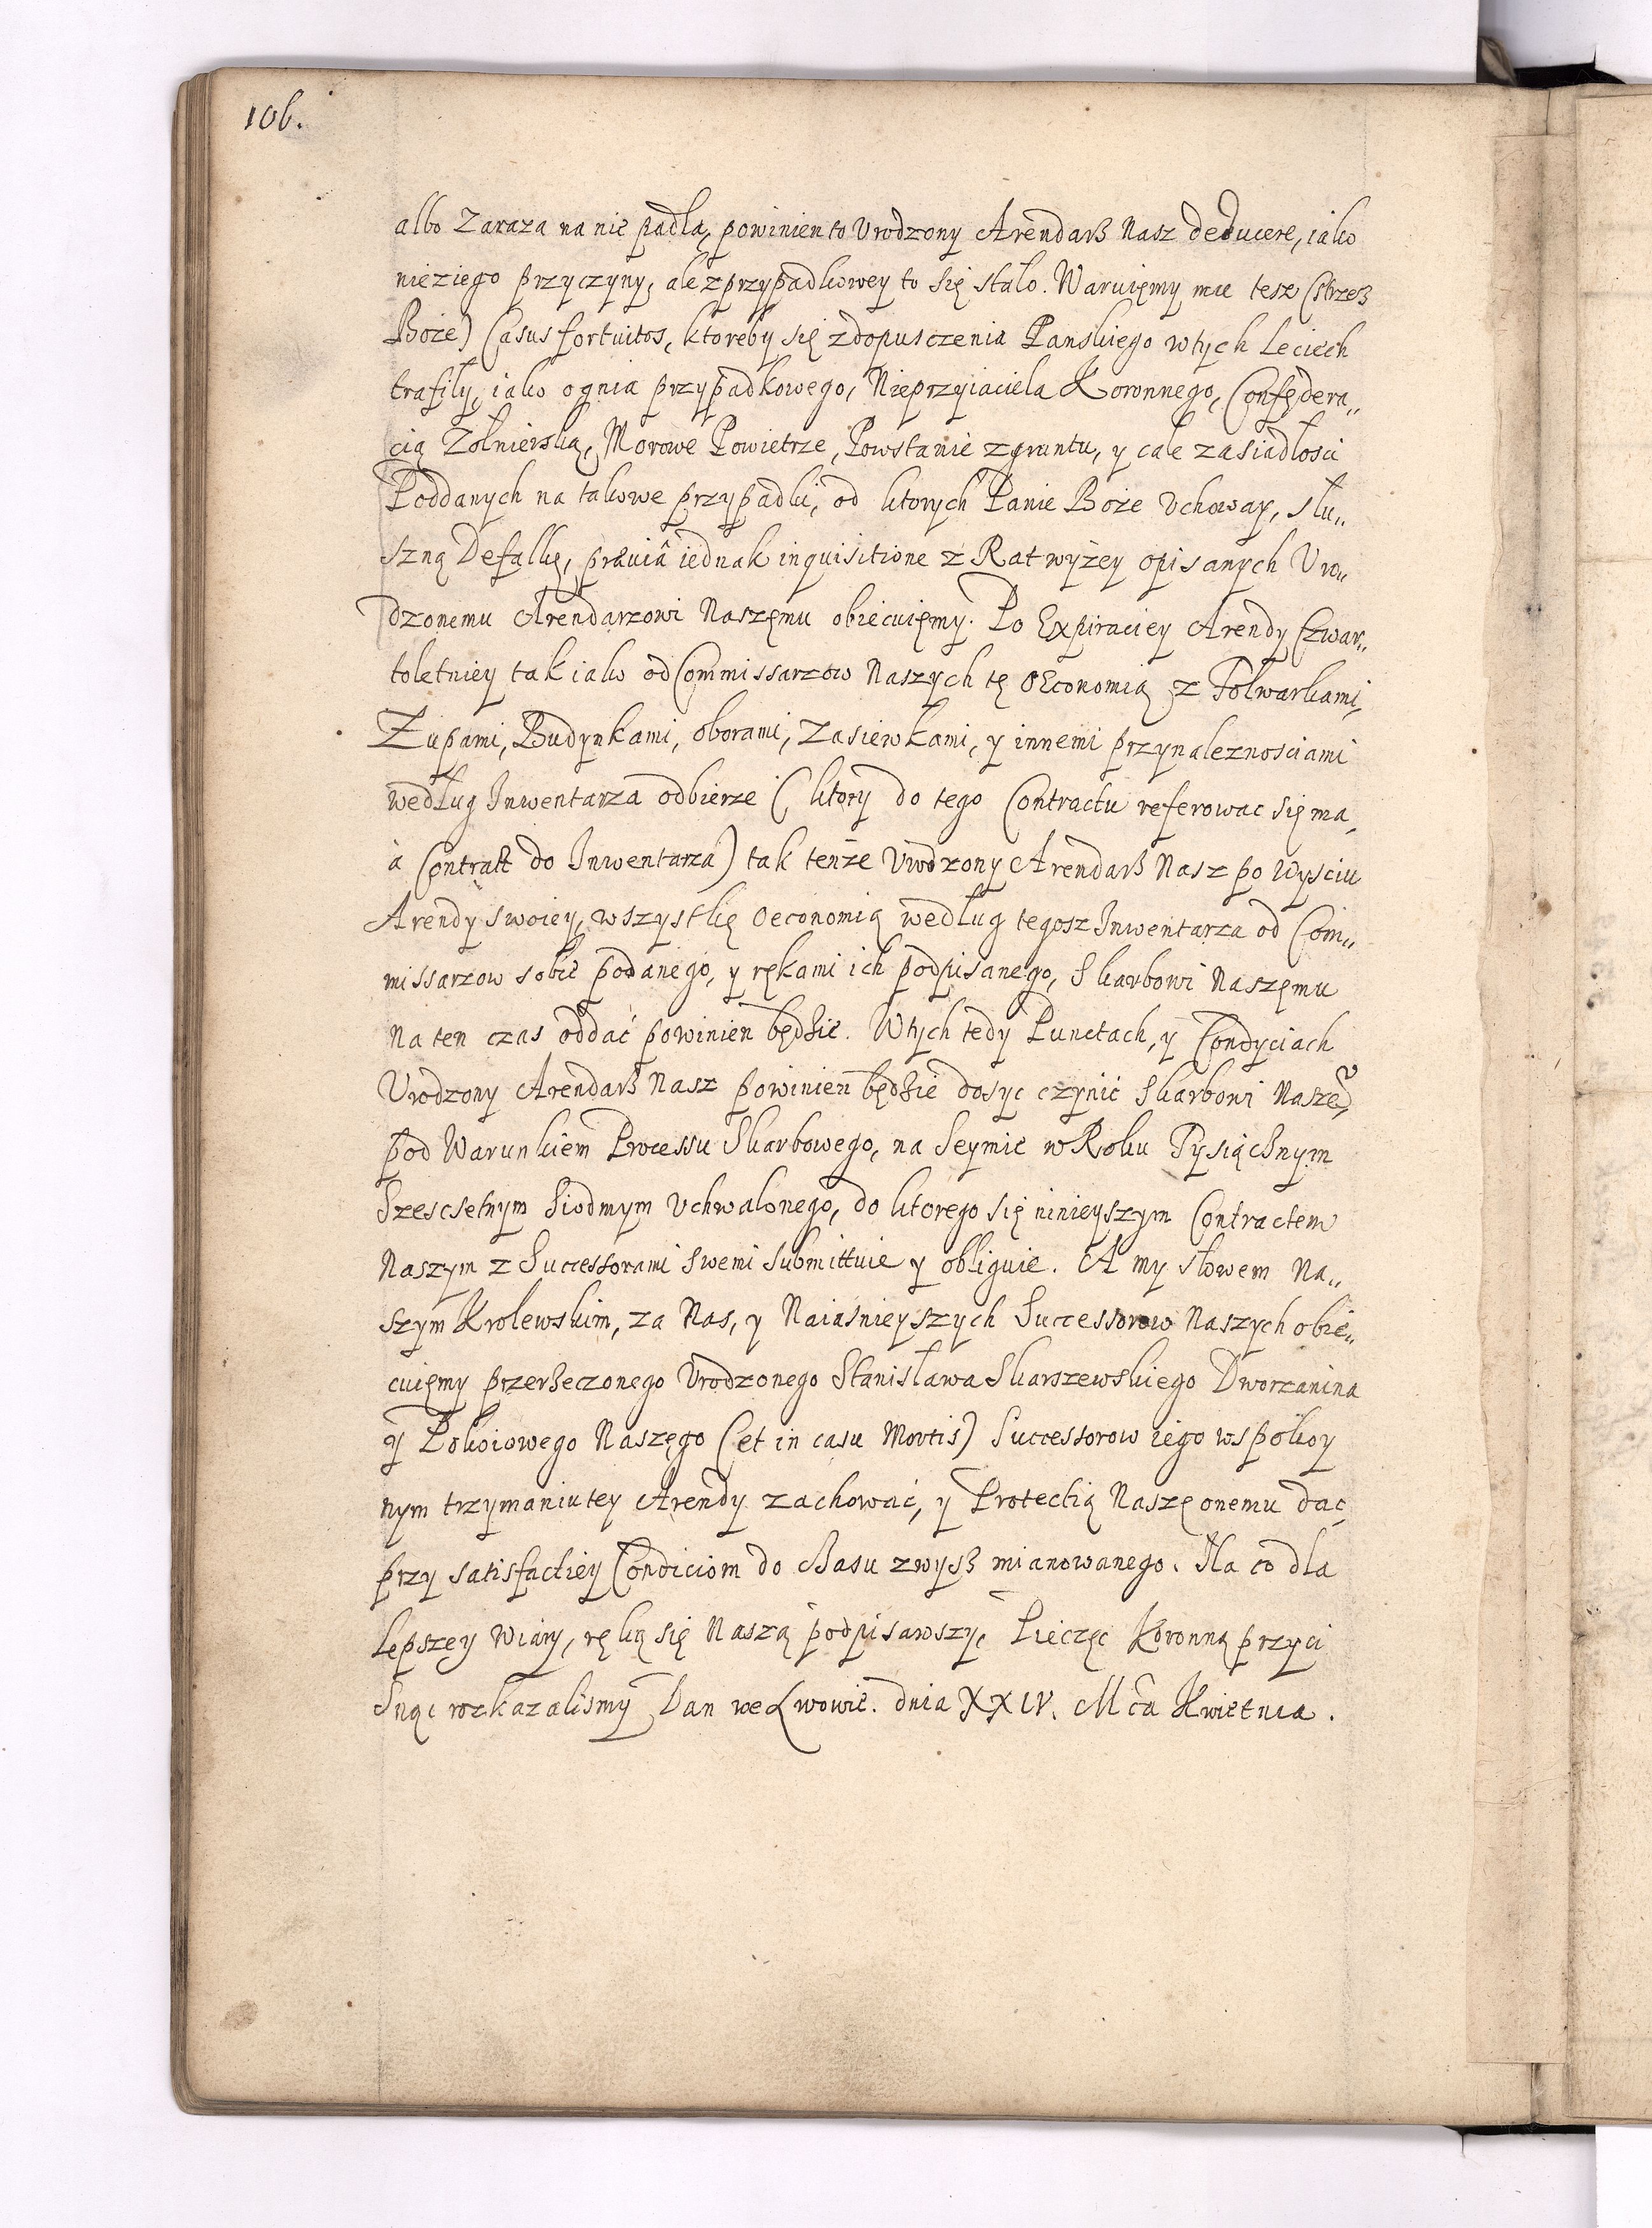 106.
albo Zaraza na nie padła, powinien to Vrodzony Arendarß Nasz deducere, iako
nie z iego przyczyny, ale z przypadkowey to się stało. Waruięmy mu tesz (strzeß
Boże) Casus fortuitos, ktoreby się z dopusczenia Panskiego w tych Leciech
trafiły, iako ognia przypadkowego, Nieprzyiaciela Koronnego, Confędera„
cią Żołnierską, Morowe Powietrze, Powstanie z gruntu, y cale zasiadłosci
Poddanych na takowe przypadki, od ktorych Panie Boże Vchoway, słu„
szną Defalkę, prævia iednak inquisitione z Rat wyżey opisanych Vro„
dzonemu Arendarzowi Naszęmu obiecuięmy. Po Expiraciey Arendy Czwar„
toletniey tak iako od Commissarzow Naszych tę OEconomią z Folwarkami,
Żupami, Budynkami, oborami, Zasiewkami, y innemi przynaleznosciami
według Inwentarza odbierze (ktory do tego Contractu referowac się ma,
à Contrakt do Inwentarza) tak tenże Vrodzony Arendarß Nasz po Wysciu
Arendy swoiey, wszystkę Oeconomią według tegosz Inwentarza od Com„
missarzow sobie podanego, y rękami ich podpisanego, Skarbowi Naszęmu
na ten czas oddać powinien będzie. W tych tedy Punctach, y Condyciach
Vrodzony Arendarß Nasz powinien będzie dosyc czynić Skarbowi Naszę̃
pod Warunkiem Processu Skarbowego, na Seymie w Roku Tysiącßnym
Szescsetnym Siodmym Vchwalonego, do ktorego się ninieyszym Contractem
Naszym z Successorami Swemi Submittuie y obliguie. A my słowem Na„
szym Krolewskim, za Nas, y Naiasnieyszych Successorow Naszych obie„
cuięmy przerßeczonego Vrodzonego Stanisława Skarszewskiego Dworzanina
y Pokoiowego Naszęgo (et in casu Mortis) Successorow iego w spokoy
nym trzymaniu tey Arendy zachować, y Protectią Naszę onemu dac,
przy satisfactiey Condiciom do Czasu zwysß mianowanego. Na co dla
Lepszey Wiary, ręką się Naszą podpisawszy, Pieczęc Koronną przyci
snąc rozkazalismy Dan we Lwowie. dnia XXIV. Mca Kwietnia.